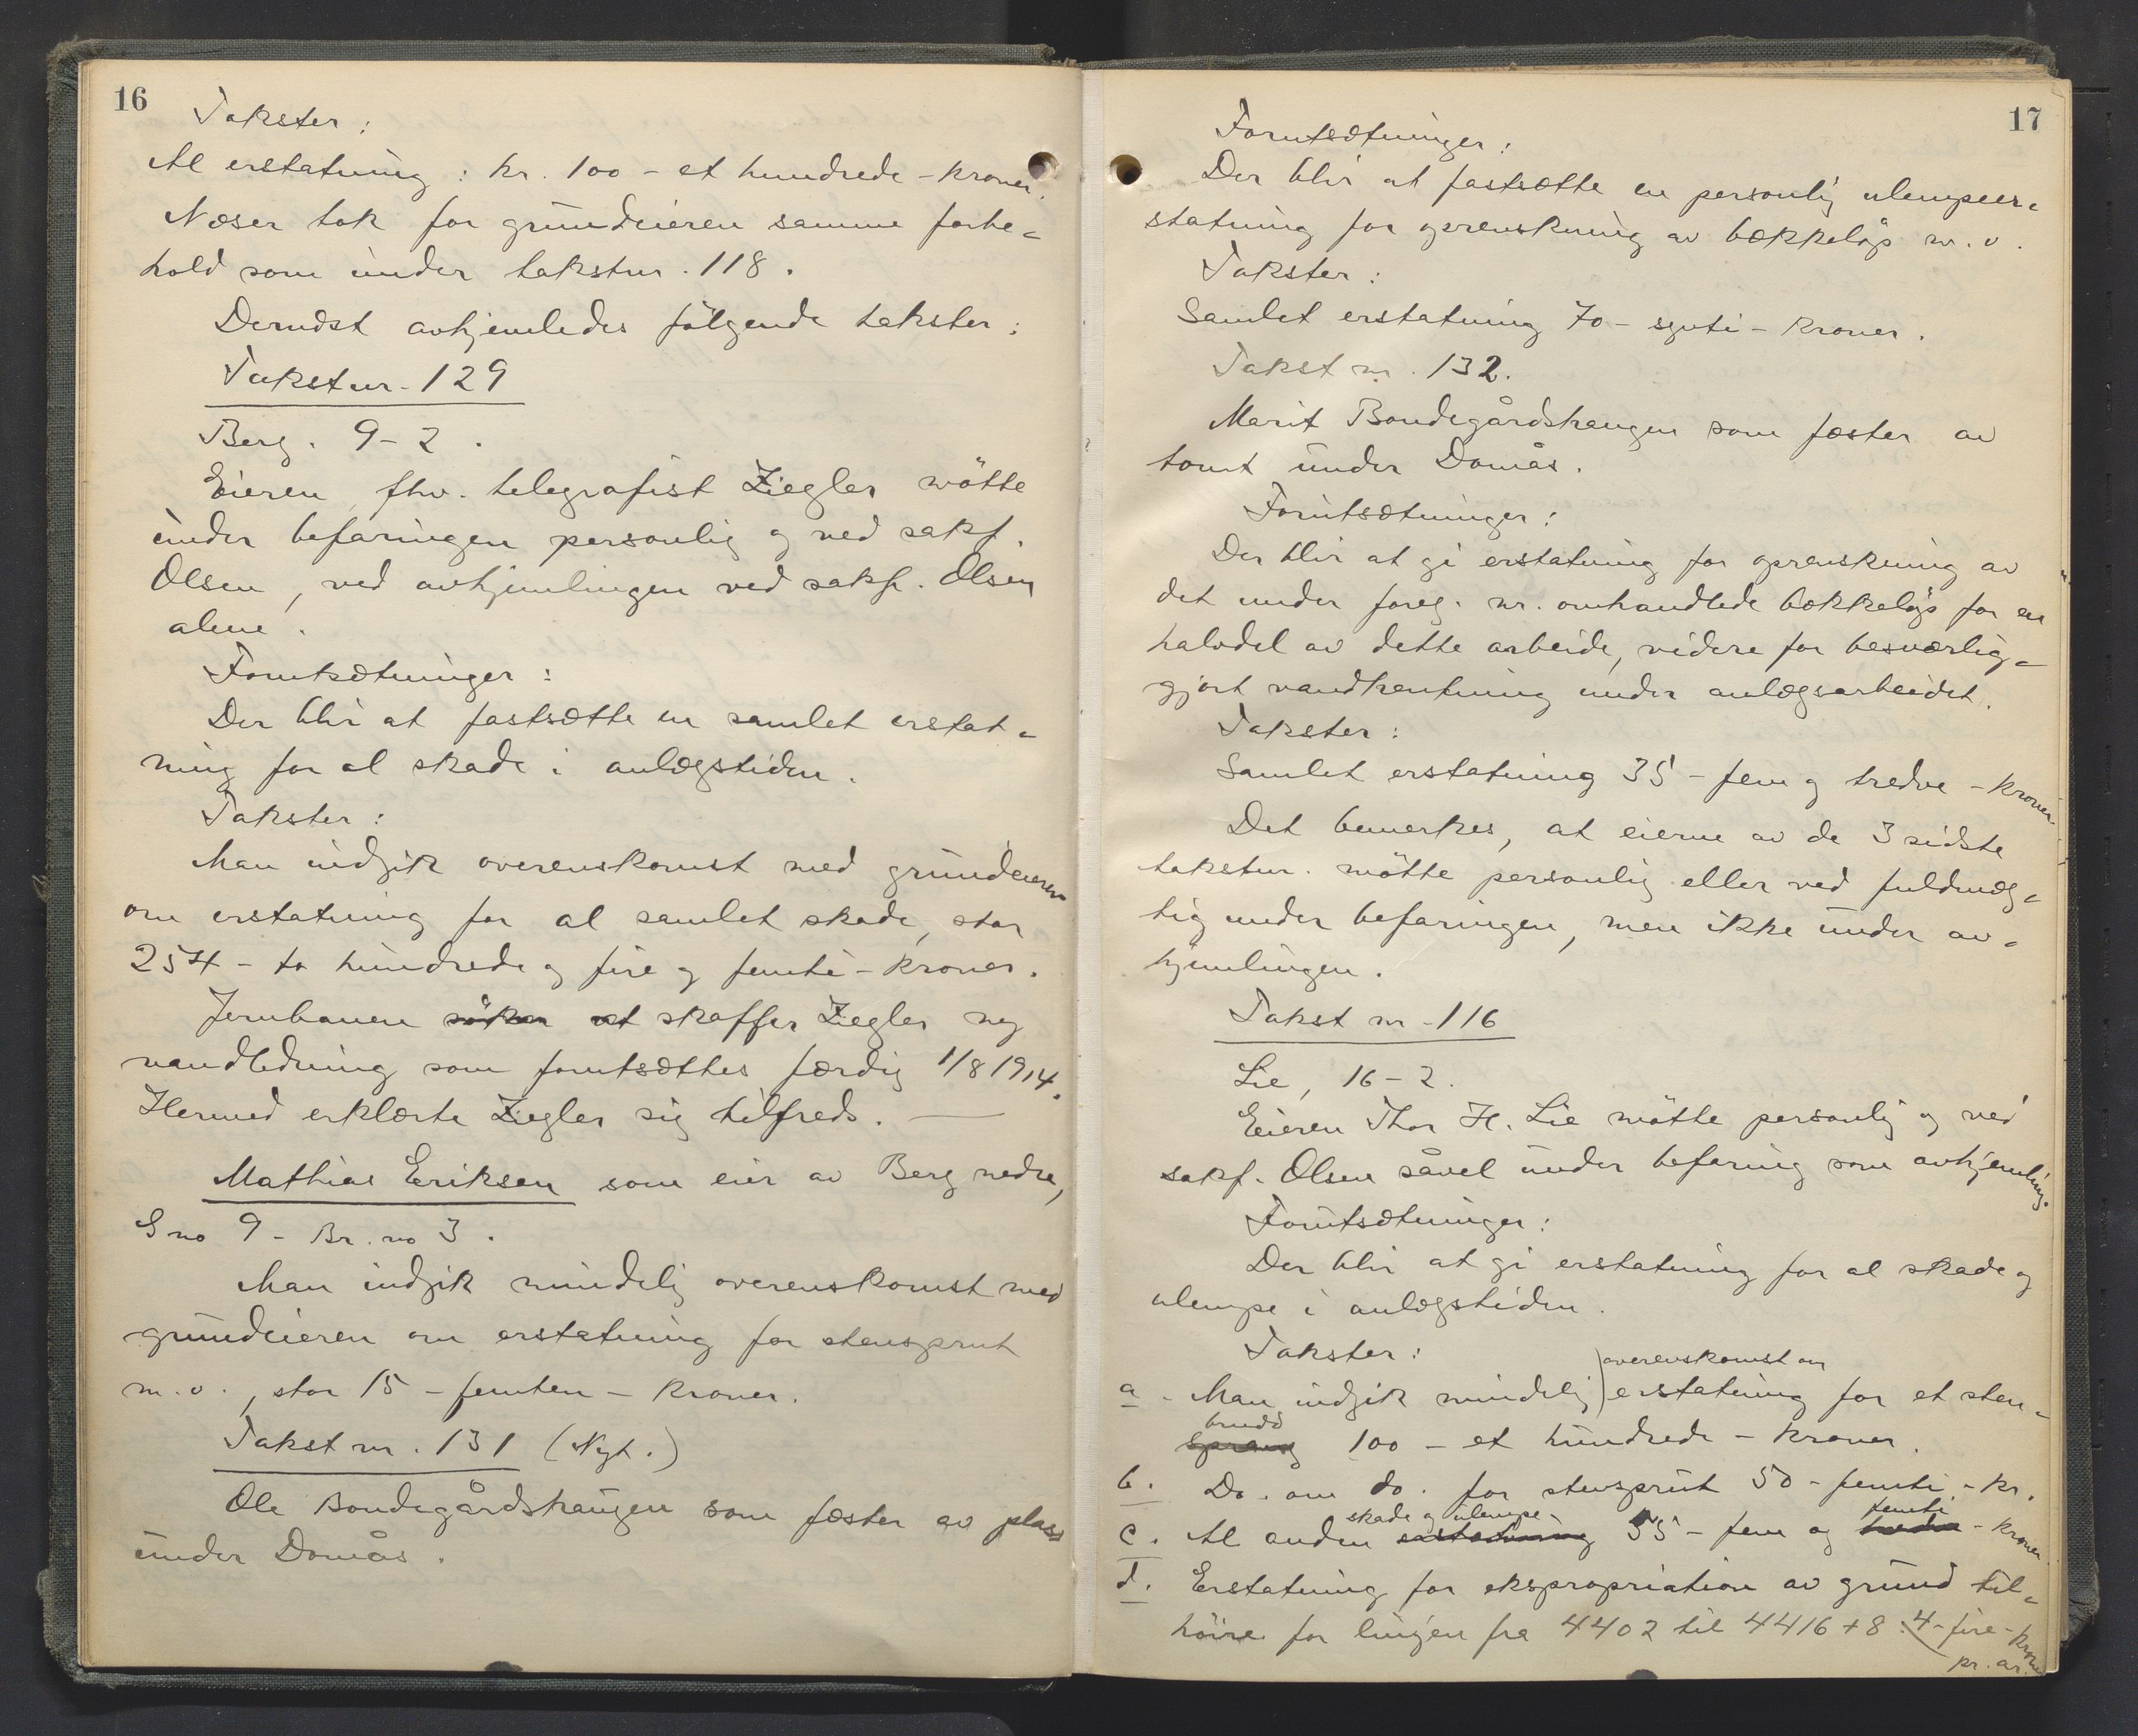 16
Takster:
Al erstatning: kr. 100 - et hundrede - kroner.
Næser tok for grundeieren samme forbe-
hold som under takstnr. 118.
Dernæst avhjemledes følgende takster:
Takstnr. 129
Berg. 9-2.
Eieren, fhv. telegrafist Ziegler møtte
under befaringen personlig og ved sakf.
Olsen, ved avhjemlingen ved sakf. Olsen
alene.
Forutsætninger:
Der blir at fastsætte en samlet erstat-
ning for al skade i anlægstiden.
Takster:
Man indgik overenskomst med grundeieren
om erstatning for al samlet skade, stor
254 - to hundrede og fire og femti - kroner.
Jernbanen søker at skaffer Ziegler ny
vandledning som forutsættes færdig 1/8 1914.
Hermed erklærte Ziegler sig tilfreds. —
Mathias Eriksen som eier av Berg nedre,
G no 9 - Br. no 3.
Man indgik mindelig overenskomst med
grundeieren om erstatning for stensprut
m.v., stor 15 - femten - kroner.
Takst nr. 131 (Nyt.)
Ole Bondegårdshaugen som fæster av plass
under Domås.
17
Forutsætninger:
Der blir at fastsætte en personlig ulempeer-
statning for oprenskning av bækkeløp m.v.
Takster:
Samlet erstatning 70 - sytti - kroner.
Takst nr. 132.
Marit Bondegårdshaugen som fæster av
tomt under Domås.
Forutsætninger:
Der blir at gi erstatning for oprenskning av
det under foreg. nr. omhandlede bækkeløp for en
halvdel av dette arbeide, videre for besværlig-
gjort vandhentning under anlægsarbeidet.
Takster:
Samlet erstatning 35 - fem og tredve - kroner.
Det bemerkes, at eierne av de 3 sidste
takstnr. møtte personlig eller ved fuldmæg-
tig under befaringen, men ikke under av-
hjemlingen.
Takst nr - 116
Lie, 16-2.
Eieren Thor H. Lie møtte personlig og ved
sakf. Olsen såvel under befaring som avhjemling.
Forutsætninger:
Der blir at gi erstatning for al skade og
ulempe i anlægstiden.
Takster:
overenskomst om
a - Man indgik mindelig) erstatning for et sten-
brudd
sprang 100 - et hundrede - kroner.
b. Do. om do. for stensprut 50 - femti - kr.
skade og ulempe femti
c. Al anden erstatning 55 - fem og tredve - kroner.
d. Erstatning for ekspropriation av grund til-
høire for linjen fra 4402 til 4416+8: 4 - fire - kroner
pr. ar.